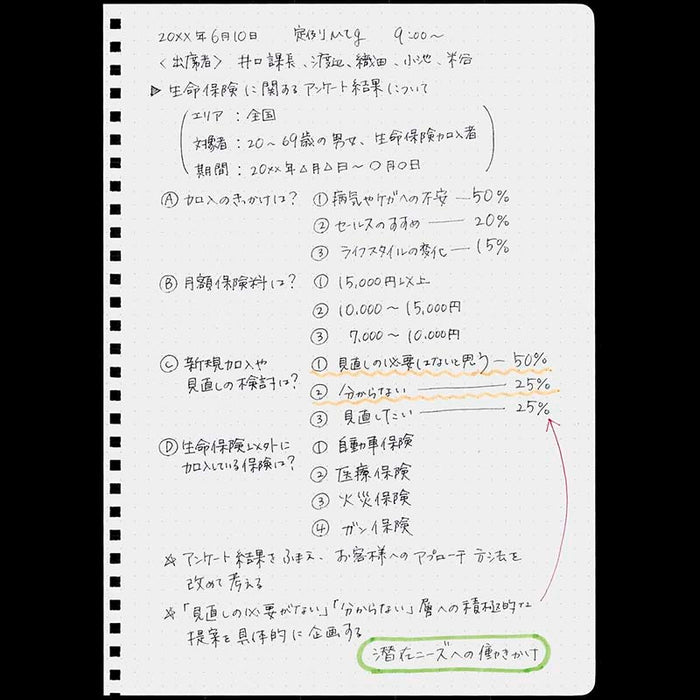 20XX年6月10日 定例Mtg 9:00〜
〈出席者〉 井口課長、渡辺、織田、小池、米谷
▶ 生命保険に関するアンケート結果について
エリア：全国
対象者：20〜69歳の男女、生命保険加入者
期間：20XX年△月△日〜〇月〇日
Ⓐ 加入のきっかけは？ ① 病気やケガへの不安 — 50%
② セールスのすすめ — 20%
③ ライフスタイルの変化 — 15%
Ⓑ 月額保険料は？ ① 15,000円以上
② 10,000〜15,000円
③ 7,000〜10,000円
Ⓒ 新規加入や ① 見直しの必要はないと思う — 50%
見直しの検討は？ ② 分からない — 25%
③ 見直したい — 25%
Ⓓ 生命保険以外に ① 自動車保険
加入している保険は？ ② 医療保険
③ 火災保険
④ ガン保険
☆ アンケート結果をふまえ、お客様へのアプローチ方法を
改めて考える
☆「見直しの必要がない」「分からない」層への積極的な
提案を具体的に企画する
潜在ニーズへの働きかけ